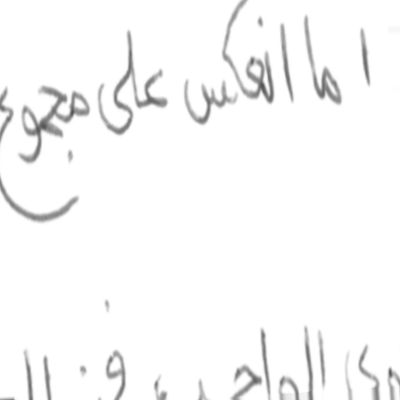 ا ما انعكس على مجموع
الواحد في